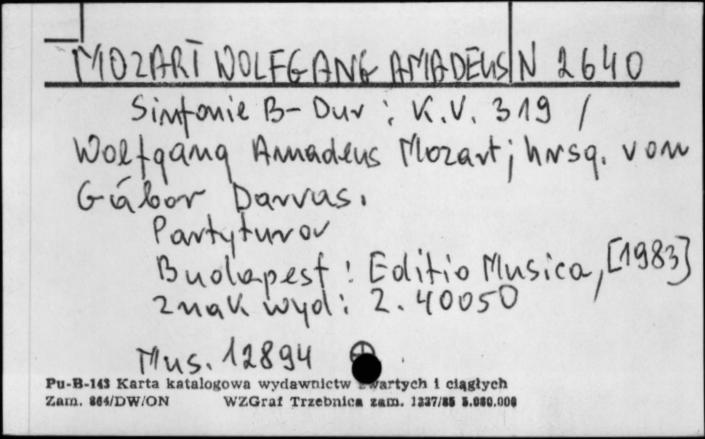 MOZART WOLFGANG AMADEUS N 2640
Sinfonie B-Dur : K.V. 319 /
Wolfgang Amadeus Mozart ; hrsg. von
Gábor Darvas.
Partytura
Budapest : Editio Musica, [1983]
znak wyd : Z. 40050
Mus. 12894
Pu-B-143 Karta katalogowa wydawnictw zwartych i ciągłych
Zam. 864/DW/ON WZGraf Trzebnica zam. 1337/85 5.000.000